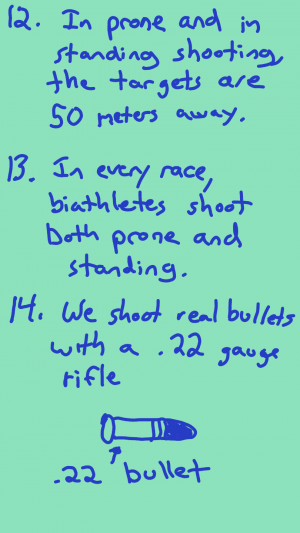 12. In prone and in
standing shooting,
the targets are
50 meters away.
13. In every race,
biathletes shoot
both prone and
standing.
14. We shoot real bullets
with a .22 gauge
rifle
.22 bullet